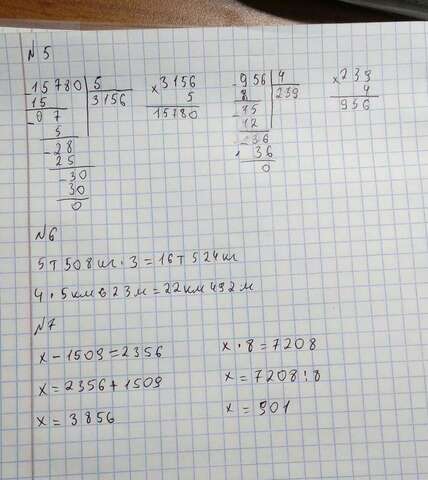 №5
15780 | 5
15 | 3156
07
5
28
25
30
30
0
× 3156
5
15780
956 | 4
8 | 239
15
12
36
36
0
× 239
4
956
№6
5т 508 кг · 3 = 16т 524 кг
4 · 5 км 623 м = 22 км 492 м
№7
x - 1509 = 2356
x = 2356 + 1509
x = 3856
x · 8 = 7208
x = 7208 : 8
x = 901